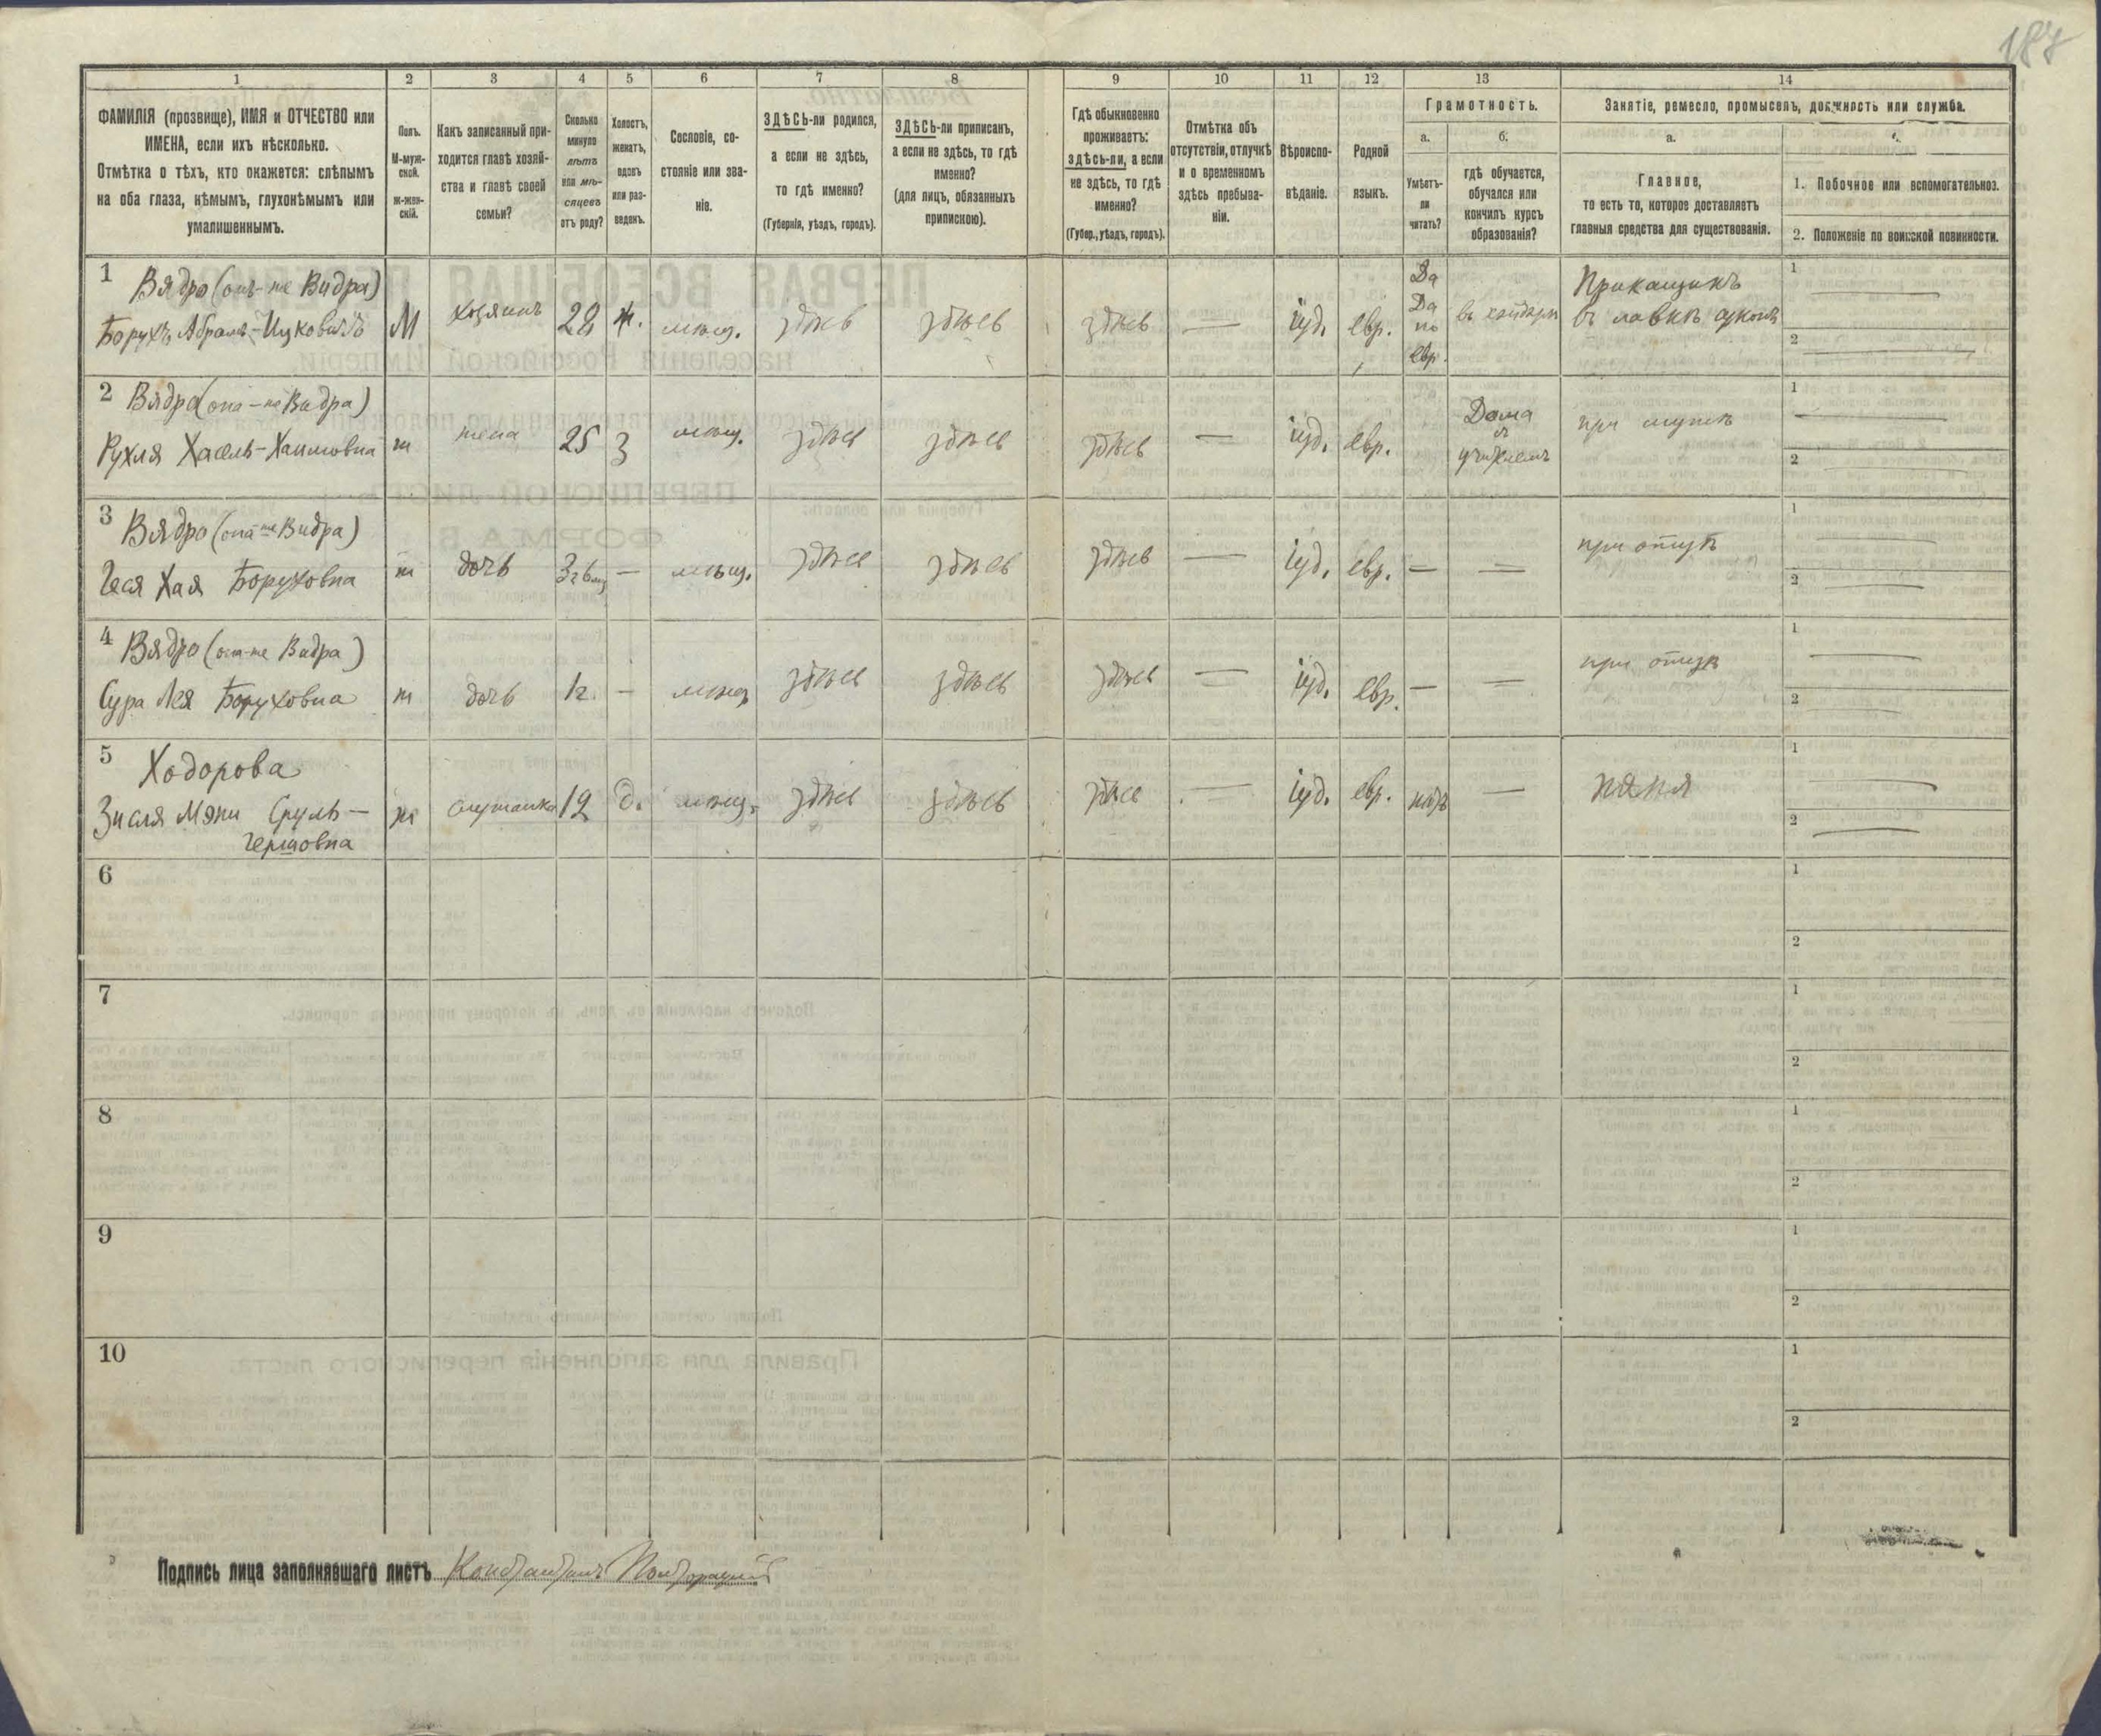 187
1 2 3 4 5 6 7 8 9 10 11 12 13 14
ФАМИЛІЯ (прозвище), ИМЯ и ОТЧЕСТВО или
ИМЕНА, если ихъ нѣсколько.
Отмѣтка о тѣхъ, кто окажется: слѣпымъ
на оба глаза, нѣмымъ, глухонѣмымъ или
умалишеннымъ.
Полъ.
М-муж-
ской.
Ж-жен-
скій.
Какъ записанный при-
ходится главѣ хозяй-
ства и главѣ своей
семьи?
Сколько
минуло
лѣтъ
или мѣ-
сяцевъ
отъ роду?
Холостъ,
женатъ,
вдовъ
или раз-
веденъ.
Сословіе, со-
стояніе или зва-
ніе.
ЗДѢСЬ-ли родился,
а если не здѣсь,
то гдѣ именно?
(Губернія, уѣздъ, городъ).
ЗДѢСЬ-ли приписанъ,
а если не здѣсь, то гдѣ
именно?
(для лицъ, обязанныхъ
припискою).
Гдѣ обыкновенно
проживаетъ:
здѣсь-ли, а если
не здѣсь, то гдѣ
именно?
(Губер., уѣздъ, городъ).
Отмѣтка объ
отсутствіи, отлучкѣ
и о временномъ
здѣсь пребыва-
ніи.
Вѣроиспо-
вѣданіе.
Родной
языкъ.
Грамотность.
а.
Умѣетъ-
ли
читать?
б.
гдѣ обучается,
обучался или
кончилъ курсъ
образованія?
Занятіе, ремесло, промыселъ, должность или служба.
а.
Главное,
то есть то, которое доставляетъ
главныя средства для существованія.
1. Побочное или вспомогательное.
2. Положеніе по воинской повинности.
1 Вядро (онъ-же Видра)
Борухъ Абрамъ-Ицковичъ
М
хозяинъ
28
ж.
мѣщ.
здѣсь
здѣсь
здѣсь
—
іуд.
евр.
Да
Да
по
евр.
въ хейдеръ
Прикащикъ
въ лавкѣ
1
2
2 Вядро (она-же Видра)
Рухля Хаемъ-Хаимовна
ж
жена
25
З
мѣщ.
здѣсь
здѣсь
здѣсь
—
іуд.
евр.
Дома
при мужѣ
1
2
3 Вядро (она же Видра)
Геся Хая Боруховна
ж
дочь
—
мѣщ.
здѣсь
здѣсь
здѣсь
—
іуд.
евр.
—
—
при отцѣ
1
2
4 Вядро (она-же Видра)
Сура Лея Боруховна
ж
дочь
1г.
—
мѣщ.
здѣсь
здѣсь
здѣсь
—
іуд.
евр.
—
—
при отцѣ
1
2
5 Ходорова
Зисля Мэни Сруль-
Гершовна
ж
служанка
12
д.
мѣщ.
здѣсь
здѣсь
здѣсь
—
іуд.
евр.
нѣтъ
—
няня
1
2
6
1
2
7
1
2
8
1
2
9
1
2
10
1
2
Подпись лица заполнявшаго листъ Константинъ